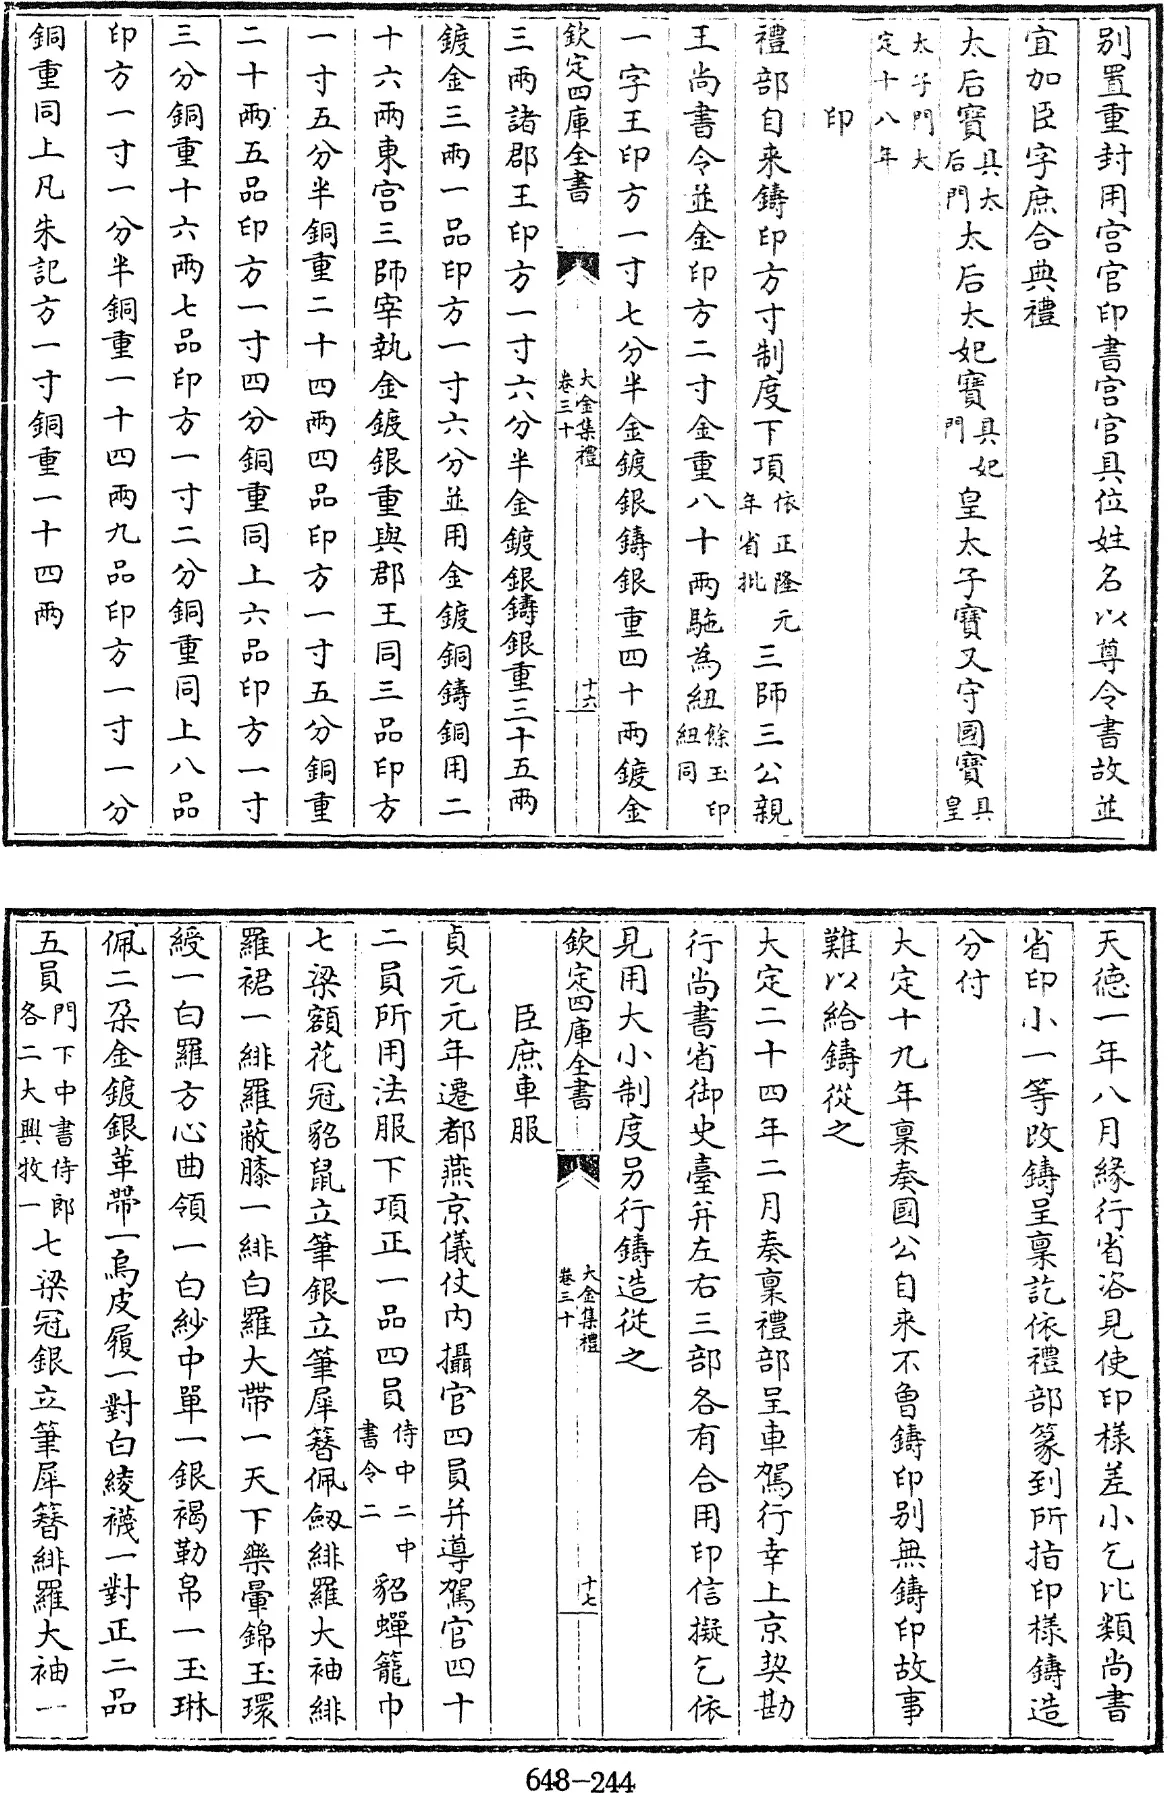 別置重封用宫官印書宫官具位姓名以尊令書故並
宜加臣字庶合典禮
太后寶具太后門太后太妃寶具妃門皇太子寶又守國寶具皇
太子門大定十八年
印
禮部自来鑄印方寸制度下項依正隆元年省批三師三公親
王尚書令並金印方二寸金重八十兩駞為紐餘玉印紐同
一字王印方一寸七分半金鍍銀鑄銀重四十兩鍍金
欽定四庫全書
大金集禮
卷三十
十六
三兩諸郡王印方一寸六分半金鍍銀鑄銀重三十五兩
鍍金三兩一品印方一寸六分並用金鍍銅鑄銅用二
十六兩東宫三師宰執金鍍銀重與郡王同三品印方
一寸五分半銅重二十四兩四品印方一寸五分銅重
二十兩五品印方一寸四分銅重同上六品印方一寸
三分銅重十六兩七品印方一寸二分銅重同上八品
印方一寸一分半銅重一十四兩九品印方一寸一分
銅重同上凡朱記方一寸銅重一十四兩
天德一年八月緣行省咨見使印樣差小乞比類尚書
省印小一等改鑄呈稟訖依禮部篆到所指印樣鑄造
分付
大定十九年稟奏國公自来不魯鑄印别無鑄印故事
難以給鑄從之
大定二十四年二月奏稟禮部呈車駕行幸上京契勘
行尚書省御史臺并左右三部各有合用印信擬乞依
見用大小制度另行鑄造從之
欽定四庫全書
大金集禮
卷三十
十七
臣庶車服
貞元元年遷都燕京儀仗内攝官四員并導駕官四十
二員所用法服下項正一品四員侍中二中書令二貂蟬籠巾
七梁額花冠貂鼠立筆銀立筆犀簪佩劔緋羅大袖緋
羅裙一緋羅蔽膝一緋白羅大帶一天下樂暈錦玉環
綬一白羅方心曲領一白紗中單一銀褐勒帛一玉珠
佩二朶金鍍銀革帶一烏皮履一對白綾襪一對正二品
五員門下中書侍郎各二大興牧一七梁冠銀立筆犀簪緋羅大袖一
648-244